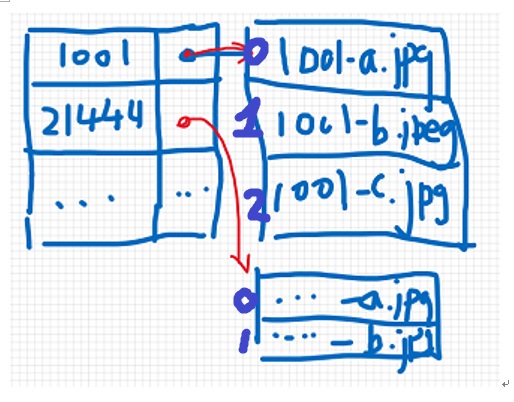 1001
21444
... ...
0 1001-a.jpg
1 1001-b.jpeg
2 1001-c.jpg
0 ... -a.jpg
1 .... - b.jpg